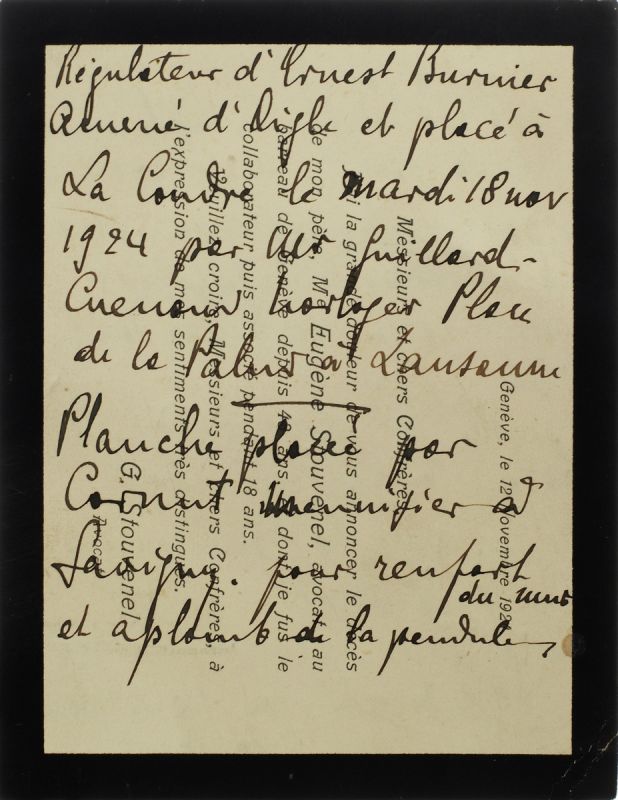 Régulateur d'Ernest Burnier
Amené d'Aigle et placé à
La Coudre le mardi 18 nov
1924 par Mr Guillard-
Cuenoud horloger Place
de la Palud à Lausanne
Planche placée par
Cornut menuisier à
Savigny. pour renfort
du mur
et aplomb de la pendule,
Genève, le 12 Novembre 192
Messieurs et chers Confrères,
J'ai la grande douleur de vous annoncer le décès
de mon père, Me Eugène Stouvenel, avocat au
barreau de Genève depuis 40 ans et dont je fus le
collaborateur puis associé pendant 18 ans.
Veuillez croire, Messieurs et chers Confrères, à
l'expression de mes sentiments très distingués.
G. Stouvenel
Avocat